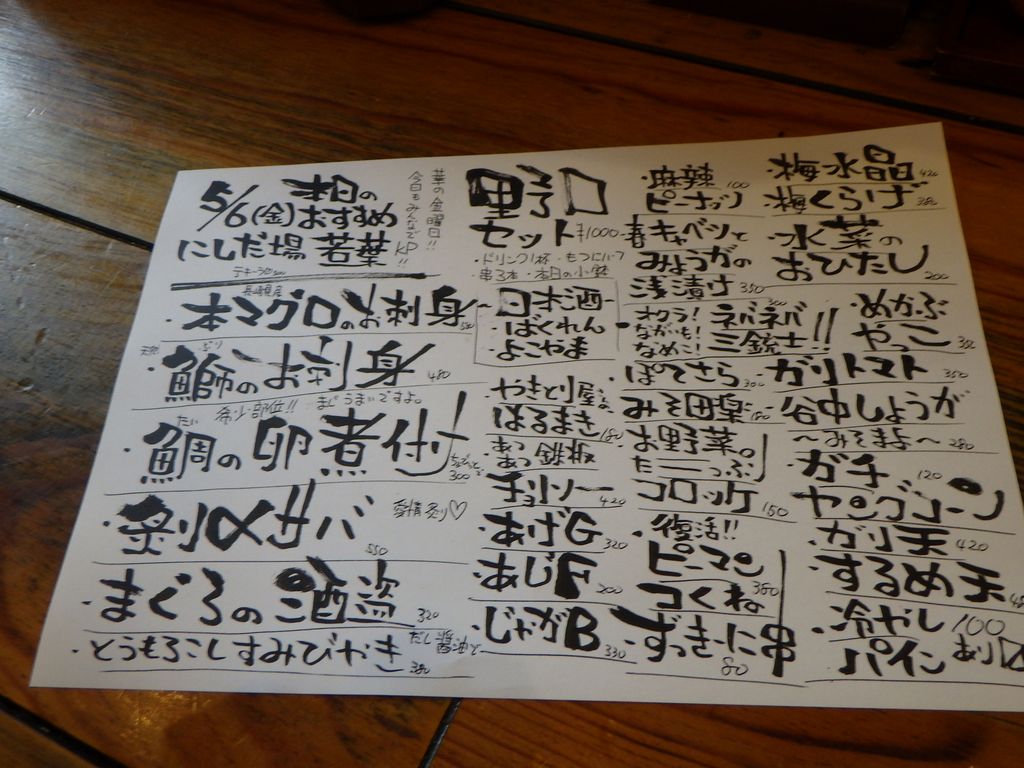 5/6(金)本日の
おすすめ
にしだ場 若葉
葉の金曜日!!
今日もみんなで
KP!!
長崎県産
・本マグロのお刺身
天然 ぶり
・鰤のお刺身 480
希少部位!! まじうまいですよ。
たい
・鯛の卵煮付
300
炙り〆サバ 550
愛情炙り♡
・まぐろの酒盗 320
・とうもろこしすみびやき 380
だし醤油で
野口
セット ¥1000
・ドリンク1杯 ・もつにいつ
・串3本 ・本日の小鉢
日本酒
・ばくれん
・よこやま
・やきとり屋さんの
はるまき 180
・あつあつ鉄板
チョリソー 420
・あげG 320
・あじF 200
・じゃがB 330
・麻辣
ピーナッツ 100
・春キャベツと
みょうがの
浅漬け 350
・オクラ!
ながいも!
なめこ!
ネバネバ
三銃士!!
・ぽてさら 300
・みそ田楽 180
・お野菜。
たーっぷり
コロッケ 150
・復活!!
ピーマン
コくね 350
・ずっきーに串 80
・梅水晶 420
・梅くらげ 380
・水菜の
おひたし 200
・めかぶ
やっこ 350
・ガリトマト 350
・谷中しょうが
〜みそまよ〜 280
・ガチ 120
ヤングコーン
・ガリ天 420
・するめ天
・冷やし 100
パイン あり〼